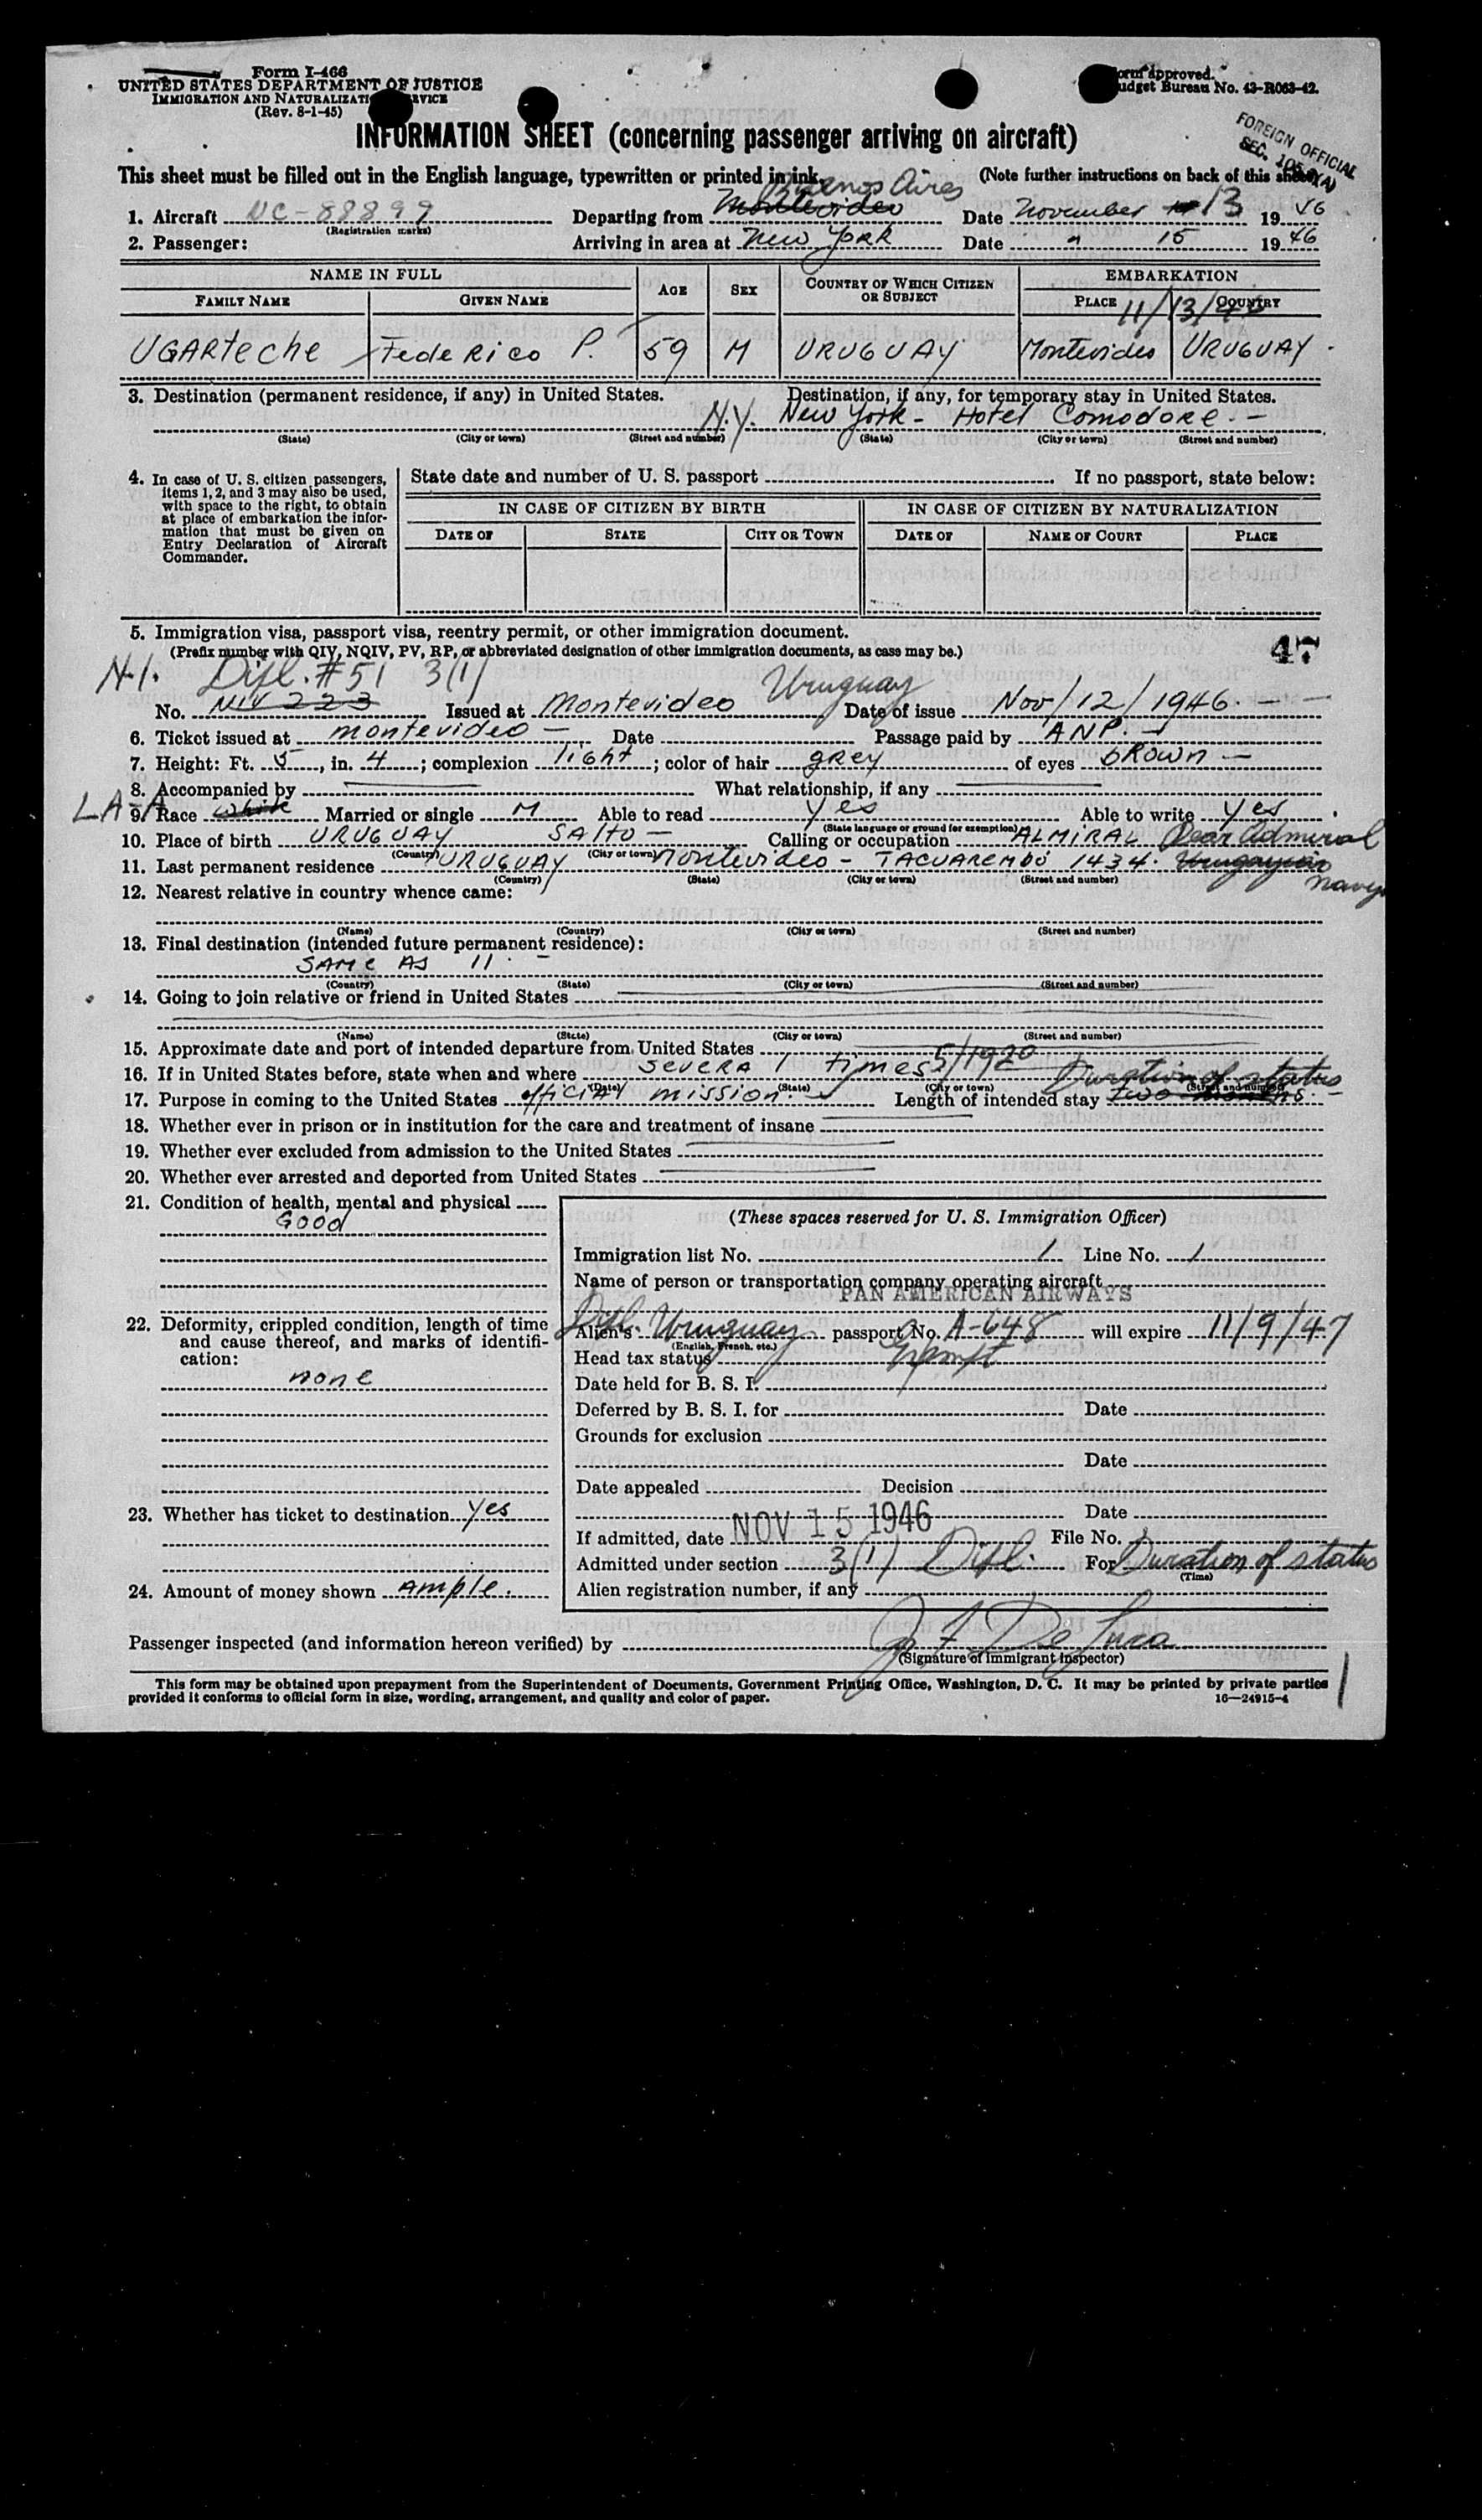 Form I-466
UNITED STATES DEPARTMENT OF JUSTICE
IMMIGRATION AND NATURALIZATI RVICE
(Rev. 8-1-45)
orm approved.
udget Bureau No. 43-R063-42.
INFORMATION SHEET (concerning passenger arriving on aircraft)
FOREIGN OFFICIAL
SEC. 105.3(A)
This sheet must be filled out in the English language, typewritten or printed in ink. (Note further instructions on back of this sheet)
Buenos Aires
1. Aircraft NC-88899 Departing from Montevideo Date November 13 1946
(Registration marks)
2. Passenger: Arriving in area at New York Date " 15 1946
NAME IN FULL AGE SEX COUNTRY OF WHICH CITIZEN OR SUBJECT EMBARKATION
FAMILY NAME GIVEN NAME PLACE COUNTRY
11/13/46
UGARTeche FedeRico P. 59 M URUGUAY Montevideo URUGUAY
3. Destination (permanent residence, if any) in United States. Destination, if any, for temporary stay in United States.
N.Y. New York - Hotel Comodore. -
(State) (City or town) (Street and number) (State) (City or town) (Street and number)
4. In case of U. S. citizen passengers, items 1, 2, and 3 may also be used, with space to the right, to obtain at place of embarkation the information that must be given on Entry Declaration of Aircraft Commander.
State date and number of U. S. passport If no passport, state below:
IN CASE OF CITIZEN BY BIRTH IN CASE OF CITIZEN BY NATURALIZATION
DATE OF STATE CITY OR TOWN DATE OF NAME OF COURT PLACE
5. Immigration visa, passport visa, reentry permit, or other immigration document.
(Prefix number with QIV, NQIV, PV, RP, or abbreviated designation of other immigration documents, as case may be.)
47
N.I. Dipl. #51 3(1) Uruguay
No. NIV 223 Issued at Montevideo Date of issue Nov/12/1946. -
6. Ticket issued at montevideo - Date Passage paid by ANP. -
7. Height: Ft. 5, in. 4; complexion light; color of hair grey of eyes bROWn -
8. Accompanied by What relationship, if any
LA-A
9. Race White Married or single M Able to read yes Able to write yes
(State language or ground for exemption)
10. Place of birth URUGUAY SALTO - Calling or occupation ALMIRAL Rear Admiral
(Country) (City or town)
11. Last permanent residence URUGUAY Montevideo - TACUAREMBO 1434. Uruguayan
navy
(Country) (State) (City or town) (Street and number)
12. Nearest relative in country whence came:
(Name) (Country) (City or town) (Street and number)
13. Final destination (intended future permanent residence):
SAMe AS 11. -
(Country) (State) (City or town) (Street and number)
14. Going to join relative or friend in United States
(Name) (State) (City or town) (Street and number)
15. Approximate date and port of intended departure from United States
16. If in United States before, state when and where SEVERAl times 5/1920
(Date) (State) (City or town) (Street and number)
Duration of status
17. Purpose in coming to the United States official mission. Length of intended stay two months.
18. Whether ever in prison or in institution for the care and treatment of insane
19. Whether ever excluded from admission to the United States
20. Whether ever arrested and deported from United States
21. Condition of health, mental and physical
Good
22. Deformity, crippled condition, length of time and cause thereof, and marks of identification:
none
23. Whether has ticket to destination yes
24. Amount of money shown ample.
(These spaces reserved for U. S. Immigration Officer)
Immigration list No. 1 Line No. 1
Name of person or transportation company operating aircraft
PAN AMERICAN AIRWAYS
Dipl.
Alien's Uruguay passport No. A-648 will expire 11/9/47
(English, French, etc.)
Head tax status Exempt
Date held for B. S. I.
Deferred by B. S. I. for Date
Grounds for exclusion
Date
Date appealed Decision
Date
If admitted, date NOV 15 1946 File No.
Admitted under section 3(1) Dipl. For Duration of status
(Time)
Alien registration number, if any
Passenger inspected (and information hereon verified) by De Luca
(Signature of Immigrant Inspector)
This form may be obtained upon prepayment from the Superintendent of Documents, Government Printing Office, Washington, D. C. It may be printed by private parties
provided it conforms to official form in size, wording, arrangement, and quality and color of paper. 16—24915-4